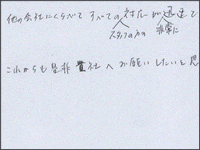 他の会社にくらべて すべての対応が迅速で
スタッフの方 非常に
これからも是非 貴社へお願いしたいと思